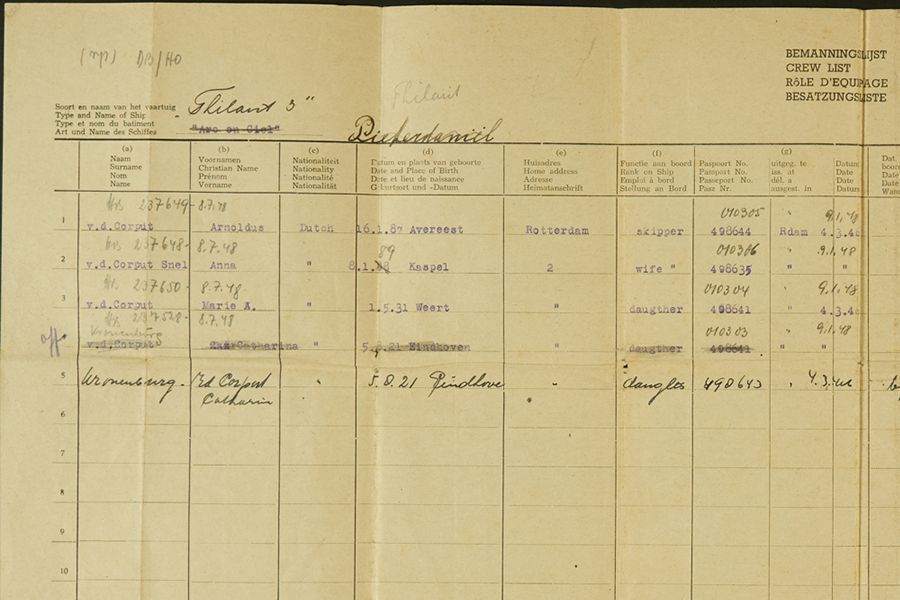 (rp) DB/HO
BEMANNINGSLIJST
CREW LIST
RôLE D'EQUIPAGE
BESATZUNGSLISTE
Soort en naam van het vaartuig
Type and Name of Ship
Type et nom du batiment
Art und Name des Schiffes
"Thilant 3"
"Arc en Ciel"
Thilant
Pieterdaniël
(a) (b) (c) (d) (e) (f) (g)
Naam Voornamen Nationaliteit Datum en plaats van geboorte Huisadres Functie aan boord Paspoort No. uitgeg. te Datum Dat.
Surname Christian Name Nationality Date and Place of Birth Home address Rank on Ship Passport No. iss. at Date
Nom Prénom Nationalité Date et lieu de naissance Adresse Emploi à bord Passeport No. dél. a Date Date
Name Vorname Nationalität Geburtsort und -Datum Heimatanschrift Stellung an Bord Pasz Nr. ausgest. in
237649 - 8.7.48 010305 " 9.1.48
1 v.d.Corput Arnoldus Dutch 16.1.87 Avereest Rotterdam skipper 498644 Rdam 4.3.46
237648 - 8.7.48 89 010306 " 9.1.48
2 v.d.Corput Snel Anna " 8.1.88 Kaspel 2 wife " 498635 " "
237650 - 8.7.48 010304 " 9.1.48
3 v.d.Corput Marie A. " 1.5.31 Weert " daugther 498641 " 4.3.46
237528 - 8.7.48 010303 " 9.1.48
Kronenburg
v.d.Corput Catharina " 5.8.21 Eindhoven " daugther 498641 " "
5 Kronenburg - vd Corput " 5.8.21 Eindhove " 490643 "
Catharin
6
7
8
9
10